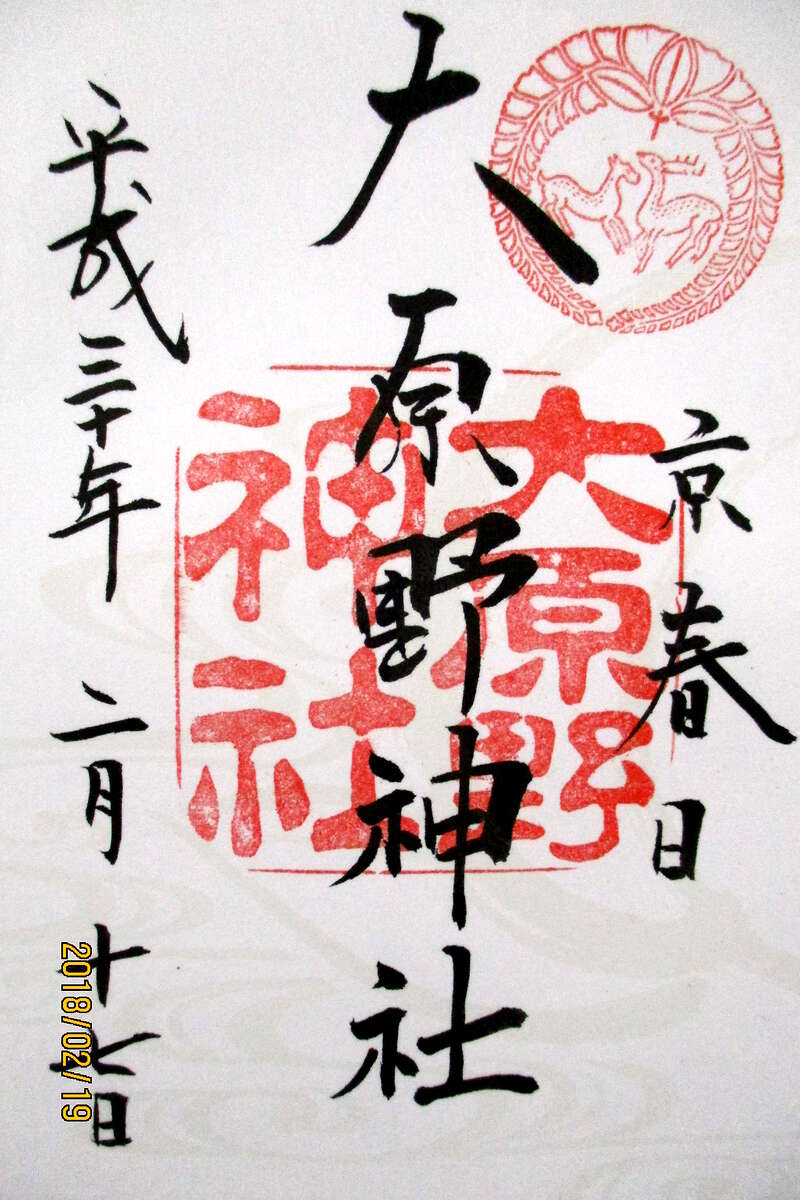 京春日
大原野神社
大原野
神社
平成三十年二月十七日
2018/02/19